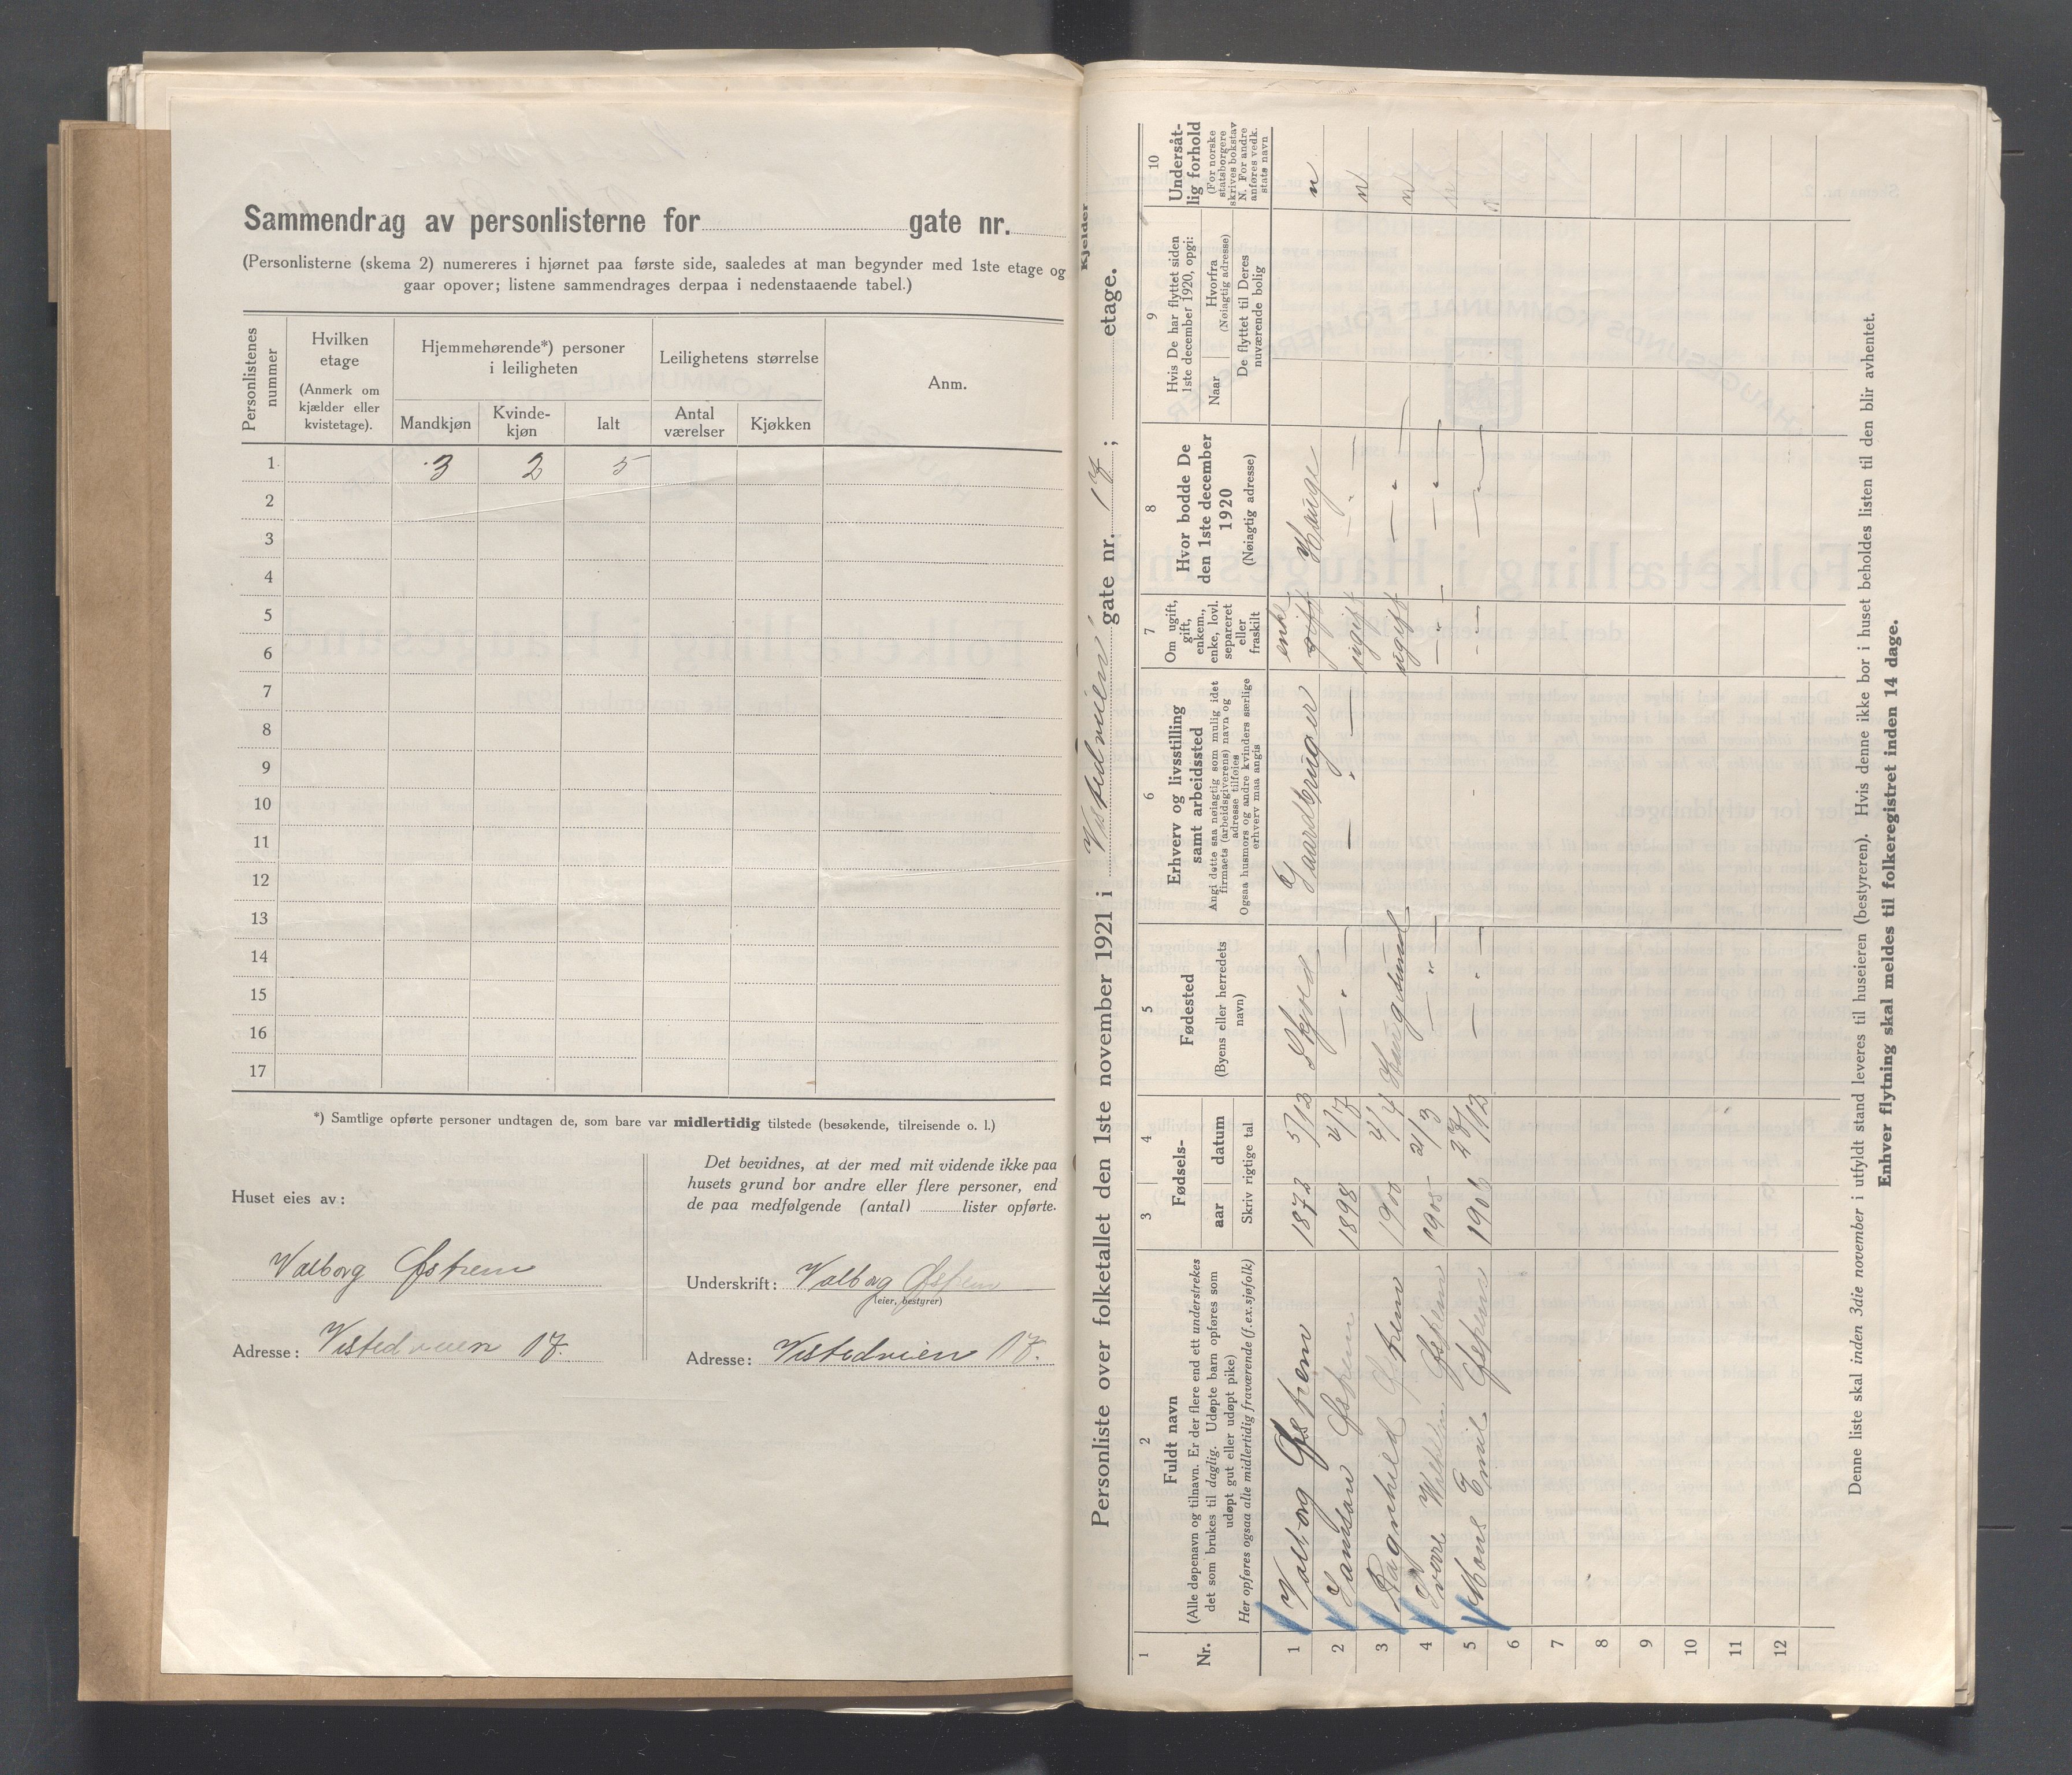 Sammendrag av personlisterne for gate nr.
(Personlisterne (skema 2) numereres i hjørnet paa første side, saaledes at man begynder med 1ste etage og
gaar opover; listene sammendrages derpaa i nedenstaaende tabel.)
Personlistenes nummer
Hvilken etage
(Anmerk om kjælder eller kvistetage).
Hjemmehørende*) personer i leiligheten
Mandkjøn
Kvinde-kjøn
Ialt
Leilighetens størrelse
Antal værelser
Kjøkken
Anm.
1 3 2 5
2
3
4
5
6
7
8
9
10
11
12
13
14
15
16
17
*) Samtlige opførte personer undtagen de, som bare var midlertidig tilstede (besøkende, tilreisende o. l.)
Huset eies av:
Valborg Østrem
Adresse: Vistedveien 17.
Det bevidnes, at der med mit vidende ikke paa
husets grund bor andre eller flere personer, end
de paa medfølgende (antal) lister opførte.
Underskrift: Valborg Østrem
(eier, bestyrer)
Adresse: Vistedveien 17.
Personliste over folketallet den 1ste november 1921 i Vistedveien gate nr. 17 ; etage.
Kjelder
1
Nr.
2
Fuldt navn
(Alle døpenavn og tilnavn. Er der flere end ett understrekes
det som brukes til daglig. Udøpte barn opføres som
udøpt gut eller udøpt pike)
Her opføres ogsaa alle midlertidig fraværende (f. ex. sjøfolk)
3 4
Fødsels-
aar datum
Skriv rigtige tal
5
Fødested
(Byens eller herredets
navn)
6
Erhverv og livsstilling
samt arbeidssted
Angi dette saa nøiagtig som mulig idet
firmaets (arbeidsgiverens) navn og
adresse tilføies
Ogsaa husmors og andre kvinders særlige
erhverv maa angis
7
Om ugift,
gift,
enkem.,
enke, lovl.
separeret
eller
fraskilt
8
Hvor bodde De
den 1ste december
1920
(Nøiagtig adresse)
9
Hvis De har flyttet siden
1ste december 1920, opgi:
Naar
Hvorfra
(Nøiagtig adresse)
De flyttet til Deres
nuværende bolig
10
Undersåt-
lig forhold
(For norske
statsborgere
skrives bokstav
N. For andre
anføres vedk.
stats navn
1 Valborg Østrem 1872 5/12 Skjold Gaardbruger enke gift Hauge n
2 Samson Østrem 1898 — " — — " — ugift — " — n
3 Ragnhild Østrem 1900 4/4 Haugesund ugift — " — n
4 Sverre Wilhelm Østrem 1905 21/3 — " — — " — — " — n
5 Mons Emil Østrem 1906 — " — — " — — " —
6
7
8
9
10
11
12
Denne liste skal inden 3die november i utfyldt stand leveres til huseieren (bestyreren). Hvis denne ikke bor i huset beholdes listen til den blir avhentet.
Enhver flytning skal meldes til folkeregistret inden 14 dage.